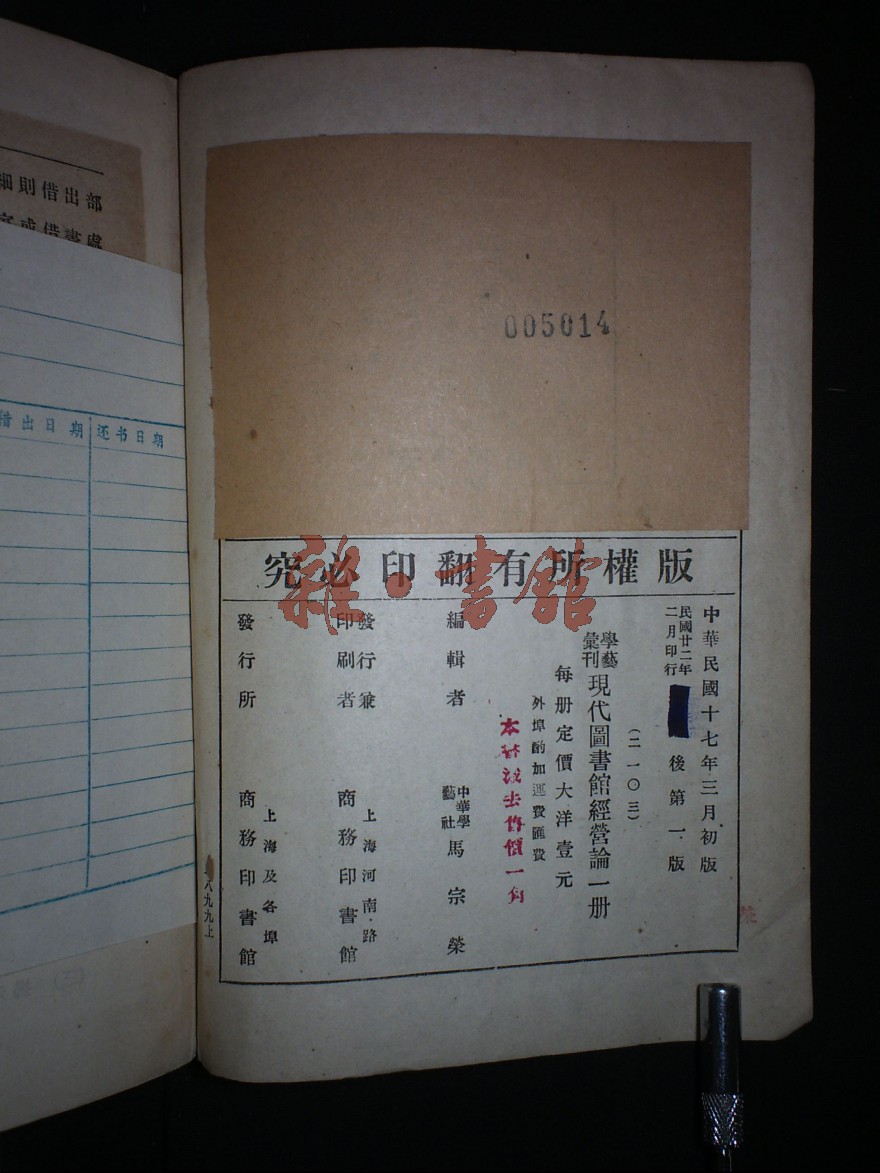 005014
版權所有翻印必究
中華民國十七年三月初版
民國廿二年
二月印行
後第一版
(二一〇三)
學藝
彙刊
現代圖書館經營論一册
每册定價大洋壹元
外埠酌加運費匯費
售價一角
編輯者
中華學
藝社
馬宗榮
發行兼
印刷者
上海河南路
商務印書館
發行所
上海及各埠
商務印書館
八九九上
細則借出部
借出日期
还书日期
雜·書館